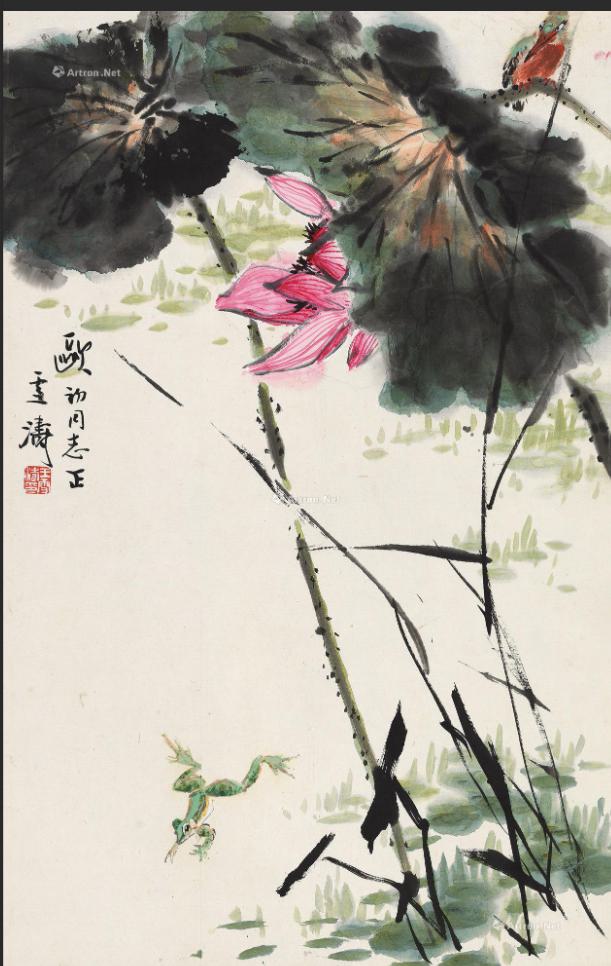 Artron.Net
歐初同志正
雪濤
Artron.Net
Artron.Net